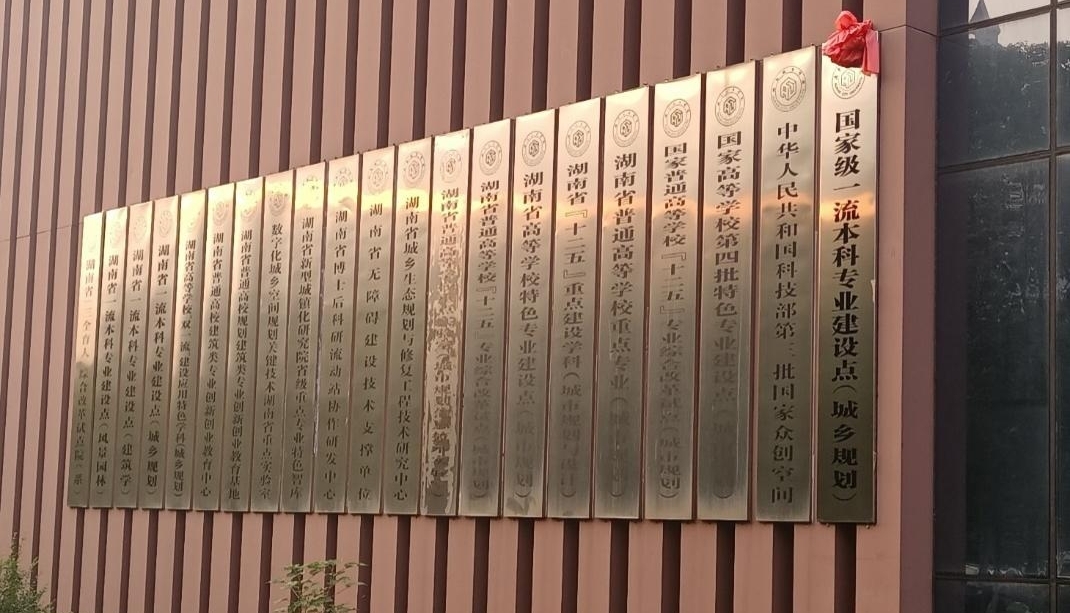 国家级一流本科专业建设点（城乡规划）
中华人民共和国科技部第三批国家众创空间
国家高等学校第四批特色专业建设点（城市规划）
国家普通高等学校『十二五』专业综合改革试点（城市规划）
湖南省普通高等学校重点专业（城市规划）
湖南省『十二五』重点建设学科（城市规划与设计）
湖南省高等学校特色专业建设点（城市规划）
湖南省普通高等学校『十二五』专业综合改革试点（城市规划）
湖南省普通高等学校
湖南省城乡生态规划与修复工程技术研究中心
湖南省无障碍建设技术支撑单位
湖南省博士后科研流动站协作研发中心
湖南省新型城镇化研究院省级重点专业特色智库
数字化城乡空间规划关键技术湖南省重点实验室
湖南省普通高校规划建筑类专业创新创业教育基地
湖南省普通高校建筑类专业创新创业教育中心
湖南省高等学校双一流建设应用特色学科（城乡规划）
湖南省一流本科专业建设点（城乡规划）
湖南省一流本科专业建设点（建筑学）
湖南省一流本科专业建设点（风景园林）
湖南省三全育人综合改革试点院（系）